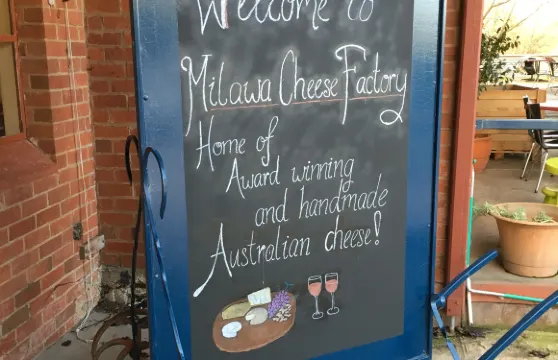 Welcome to
Milawa Cheese Factory
Home of
Award winning
and handmade
Australian cheese!